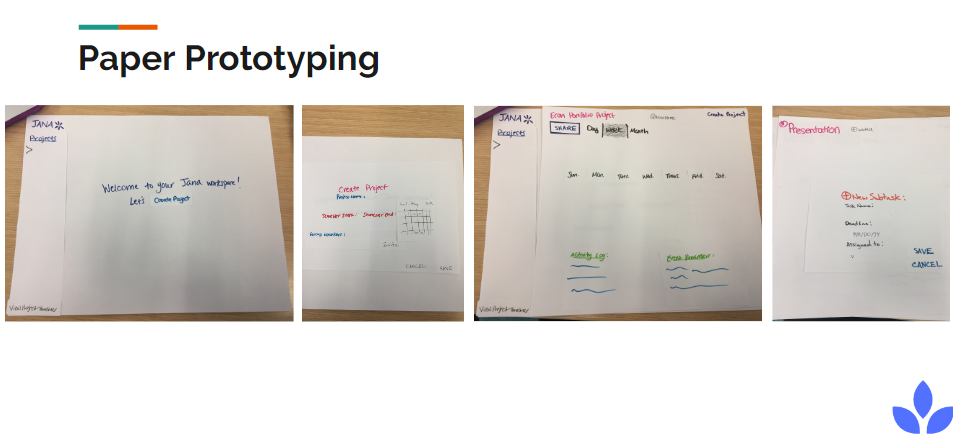 Paper Prototyping
JANA
Projects
>
Welcome to your Jana workspace!
Let's Create Project
View Project Timeline
Create Project
Project Name:
Semester Start: Semester End:
Group Members:
Invite:
CANCEL SAVE
JANA
Projects
>
Econ Portfolio Project
Create Project
SHARE Day Week Month
Sun. Mon. Tues. Wed. Thurs. Frid. Sat.
Activity Log:
View Project Timeline
Presentation
New Subtask:
Task Name:
Deadline:
Assigned to:
SAVE
CANCEL